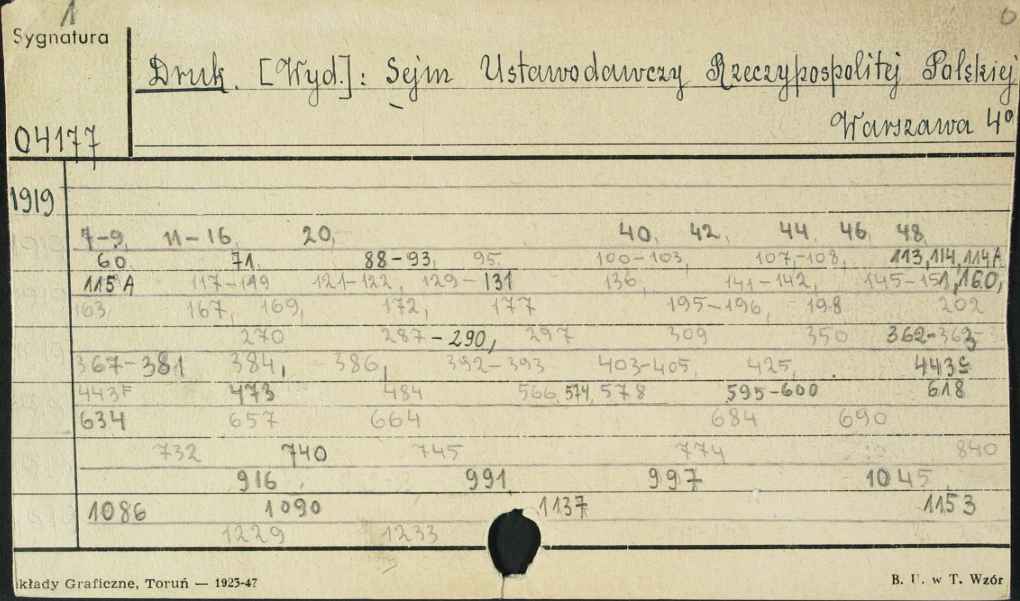 1
Sygnatura
Druk. [Wyd.]: Sejm Ustawodawczy Rzeczypospolitej Polskiej
Warszawa 4°
04177
1919
7-9, 11-16, 20, 40, 42, 44, 46, 48,
60. 71, 88-93, 95. 100-103, 107,-108, 113, 114, 114A,
115A 117-119 121-122, 129-131 136, 141-142, 145-151, 160,
163 167, 169, 172, 177 195-196, 198 202
270 287-290, 297 309 350 362-363
367-381 384, 386, 392-393 403-405, 425,
443F 473 484 566, 574, 578 595-600 618
634 657 664 684 690
732 740 745 774 840
916 991 997 1045
1086 1090 1137 1153
1229 1233
kłady Graficzne, Toruń — 1923-47
B. U. w T. Wzór